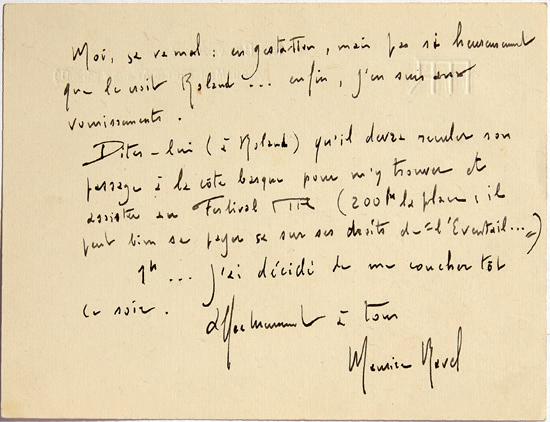 Moi, ça va mal : en gestation, mais pas si heureusement
que le croit Roland ... enfin, j'en suis aux
vomissements.
Dites-lui (à Roland) qu'il devra reculer son
passage à la côte basque pour m'y trouver et
assister au Festival MR (200 fr la place ; il
peut bien se payer ça sur ses droits de "l'Eventail...")
1h ... j'ai décidé de me coucher tôt
ce soir.
affectueusement à tous
Maurice Ravel